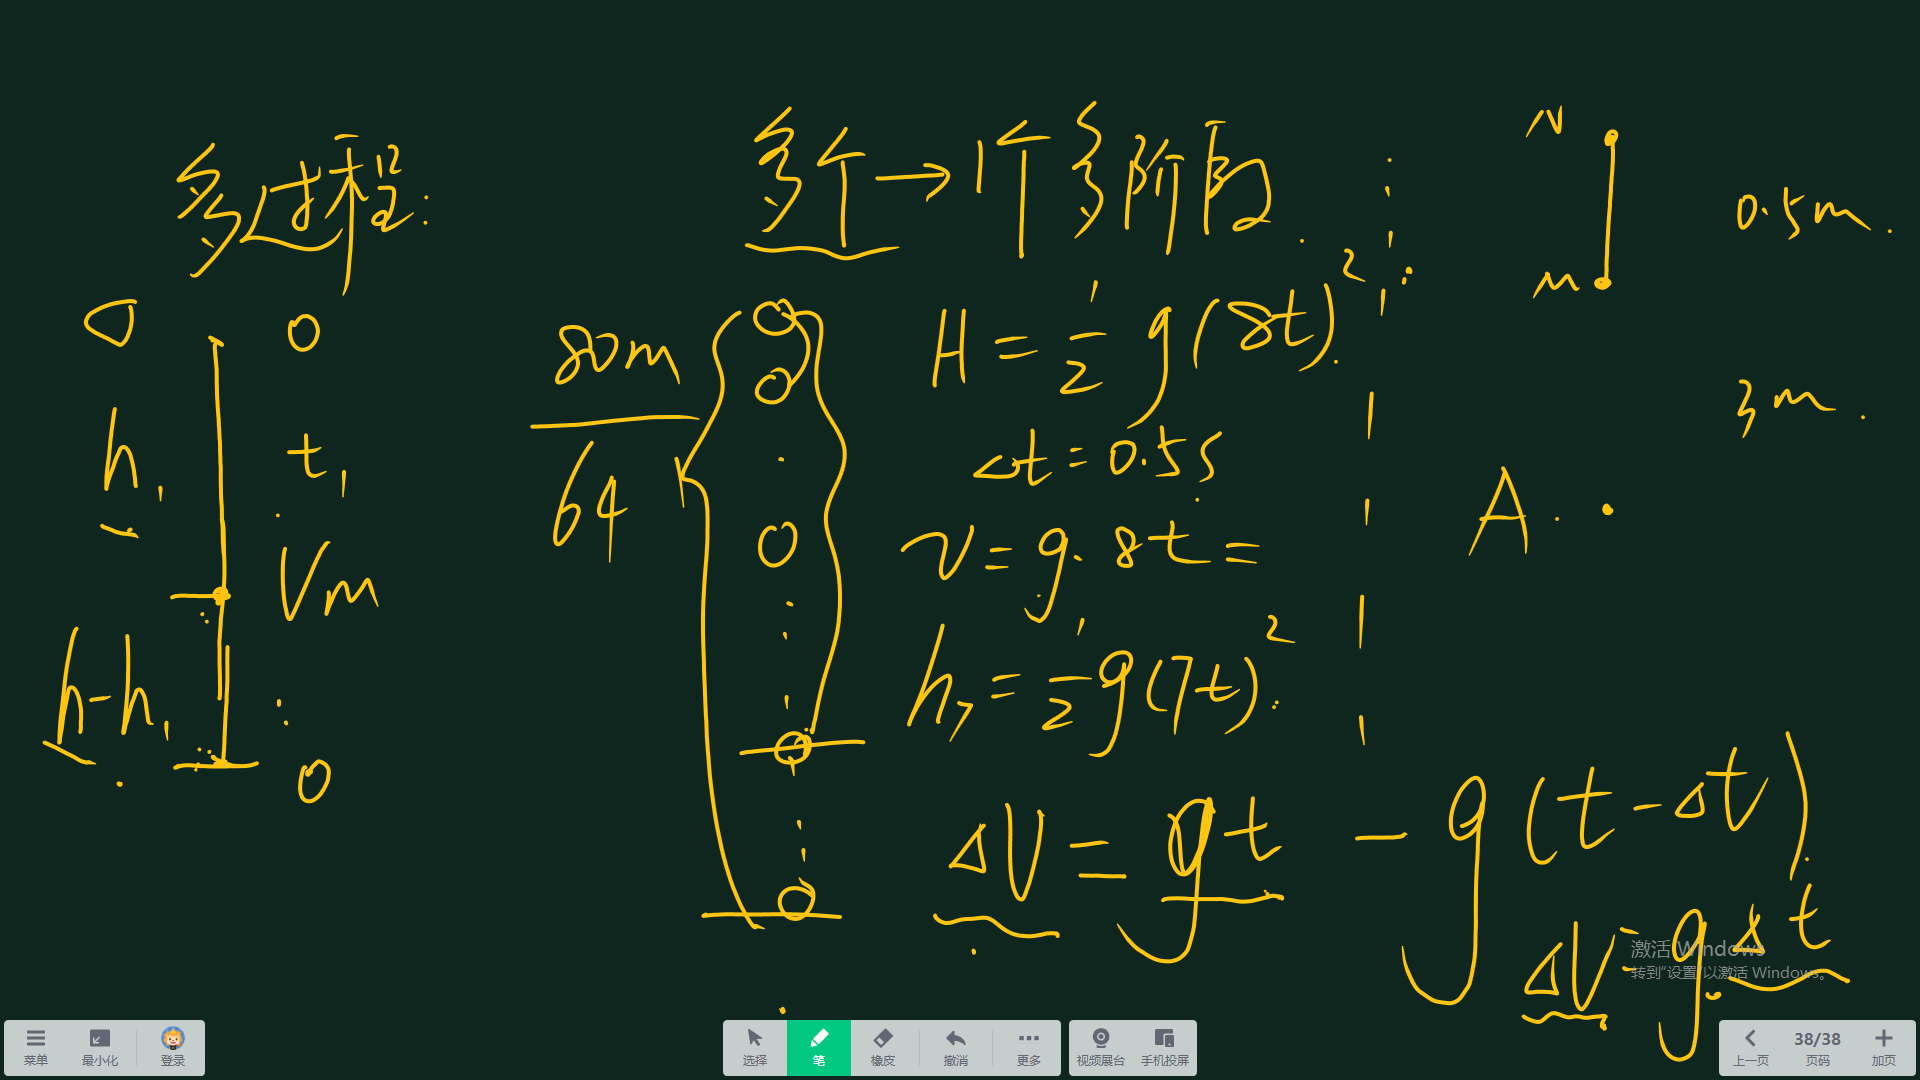 多过程:
0
h₁
t₁
Vm
h-h₁
0
多个→1个多阶段
80m
64
H=½g(8t)²
Δt=0.5s
v=g·8t=
h₇=½g(7t)²
ΔV=gt-g(t-Δt)
ΔV=gΔt
N
M
0.5m.
3m.
A.
激活 Windows
转到“设置”以激活 Windows。
菜单
最小化
登录
选择
笔
橡皮
撤消
更多
视频展台
手机投屏
上一页
38/38
页码
加页